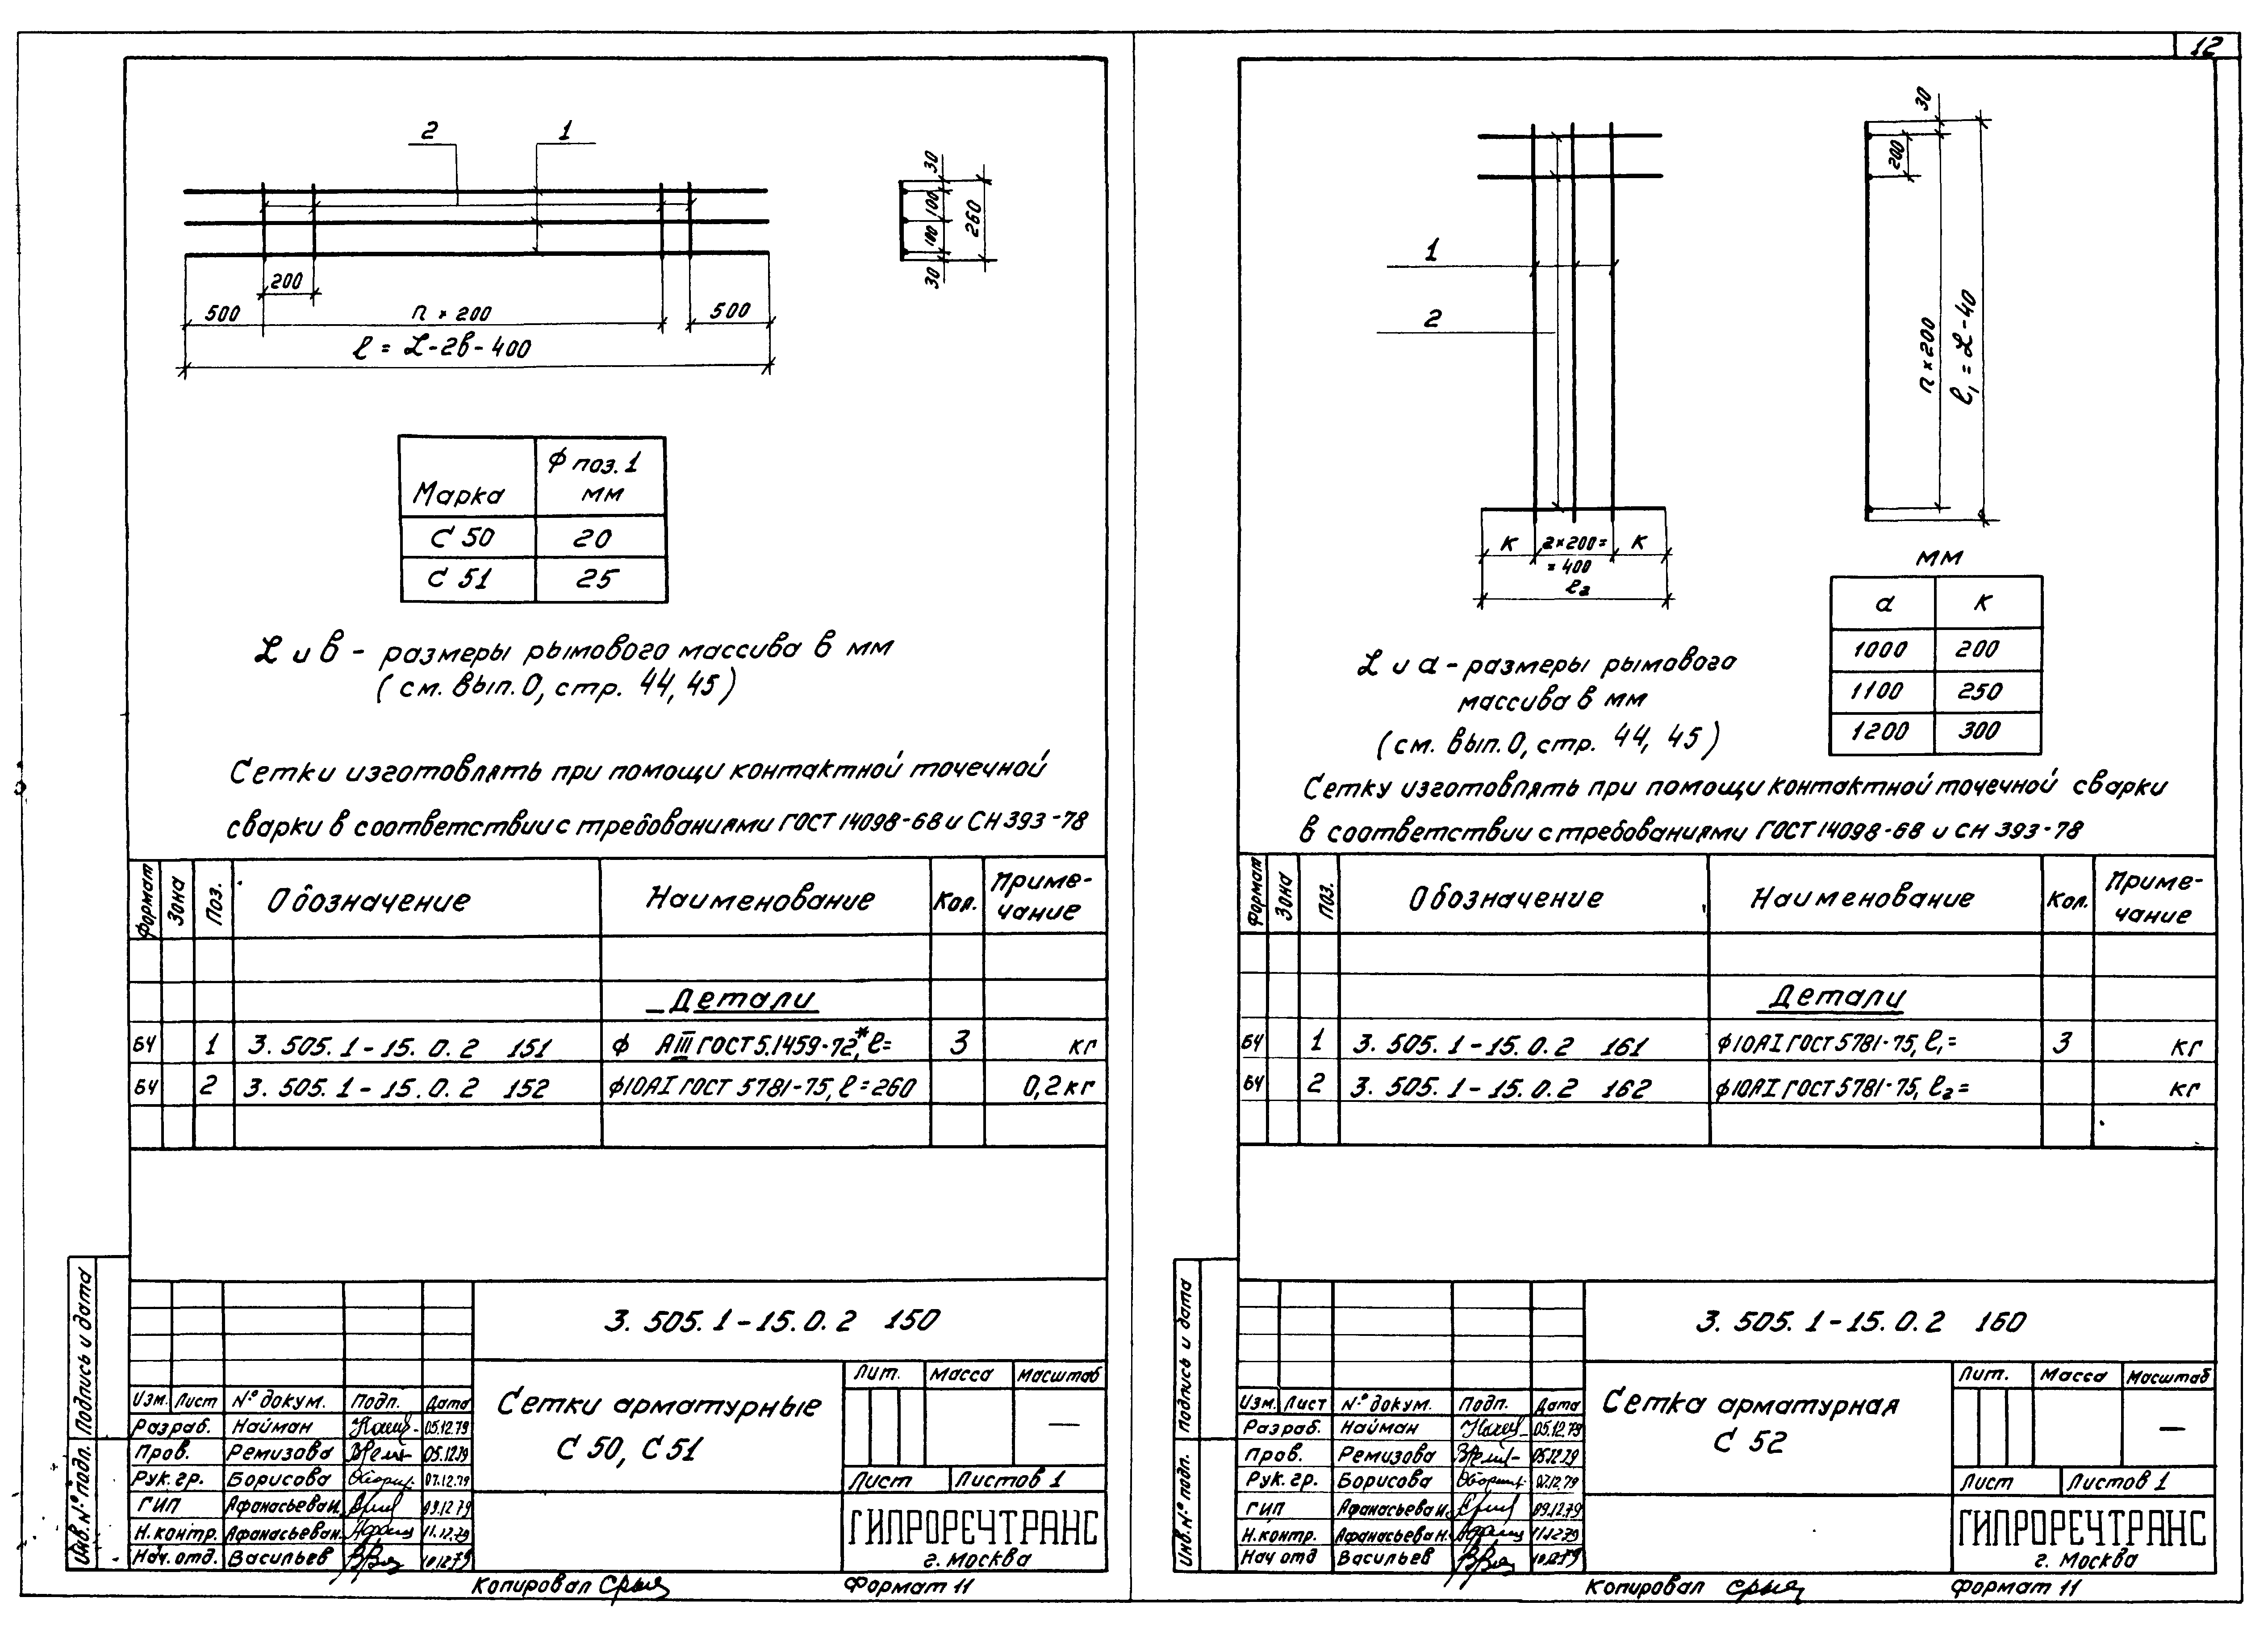 12
2
1
200
500
n × 200
500
ℓ = L-2в-400
30
100
100
30
260
Марка
Ф поз. 1
мм
С 50
20
С 51
25
L и в - размеры рымового массива в мм
(см. вып. 0, стр. 44, 45)
Сетки изготовлять при помощи контактной точечной
сварки в соответствии с требованиями ГОСТ 14098-68 и СН 393-78
Формат
Зона
Поз.
Обозначение
Наименование
Кол.
Приме-
чание
Детали
БЧ 1 3.505.1-15.0.2 151 ф АIII ГОСТ 5.1459-72*, ℓ= 3 кг
БЧ 2 3.505.1-15.0.2 152 ф10АI ГОСТ 5781-75, ℓ=260 0,2кг
Подпись и дата
Инв. № подл.
3.505.1-15.0.2 150
Изм. Лист № докум. Подп. Дата
Разраб. Найман 05.12.79
Пров. Ремизова 05.12.79
Рук. гр. Борисова 07.12.79
ГИП Афанасьева И. 09.12.79
Н. контр. Афанасьева Н. 11.12.79
Нач. отд. Васильев 10.12.79
Сетки арматурные
С 50, С 51
Лит. Масса Масштаб
—
Лист Листов 1
ГИПРОРЕЧТРАНС
г. Москва
Копировал
Формат 11
1
2
К
2×200=
=400
К
ℓ₂
30
200
n × 200
ℓ₁ = L-40
мм
а К
1000 200
1100 250
1200 300
L и а - размеры рымового
массива в мм
(см. вып. 0, стр. 44, 45)
Сетку изготовлять при помощи контактной точечной сварки
в соответствии с требованиями ГОСТ 14098-68 и СН 393-78
Формат
Зона
Поз.
Обозначение
Наименование
Кол.
Приме-
чание
Детали
БЧ 1 3.505.1-15.0.2 161 ф10АI ГОСТ 5781-75, ℓ₁= 3 кг
БЧ 2 3.505.1-15.0.2 162 ф10АI ГОСТ 5781-75, ℓ₂= кг
Подпись и дата
Инв. № подл.
3.505.1-15.0.2 160
Изм. Лист № докум. Подп. Дата
Разраб. Найман 05.12.79
Пров. Ремизова 05.12.79
Рук. гр. Борисова 07.12.79
ГИП Афанасьева И. 09.12.79
Н. контр. Афанасьева Н. 11.12.79
Нач отд Васильев 10.12.79
Сетка арматурная
С 52
Лит. Масса Масштаб
—
Лист Листов 1
ГИПРОРЕЧТРАНС
г. Москва
Копировал
Формат 11